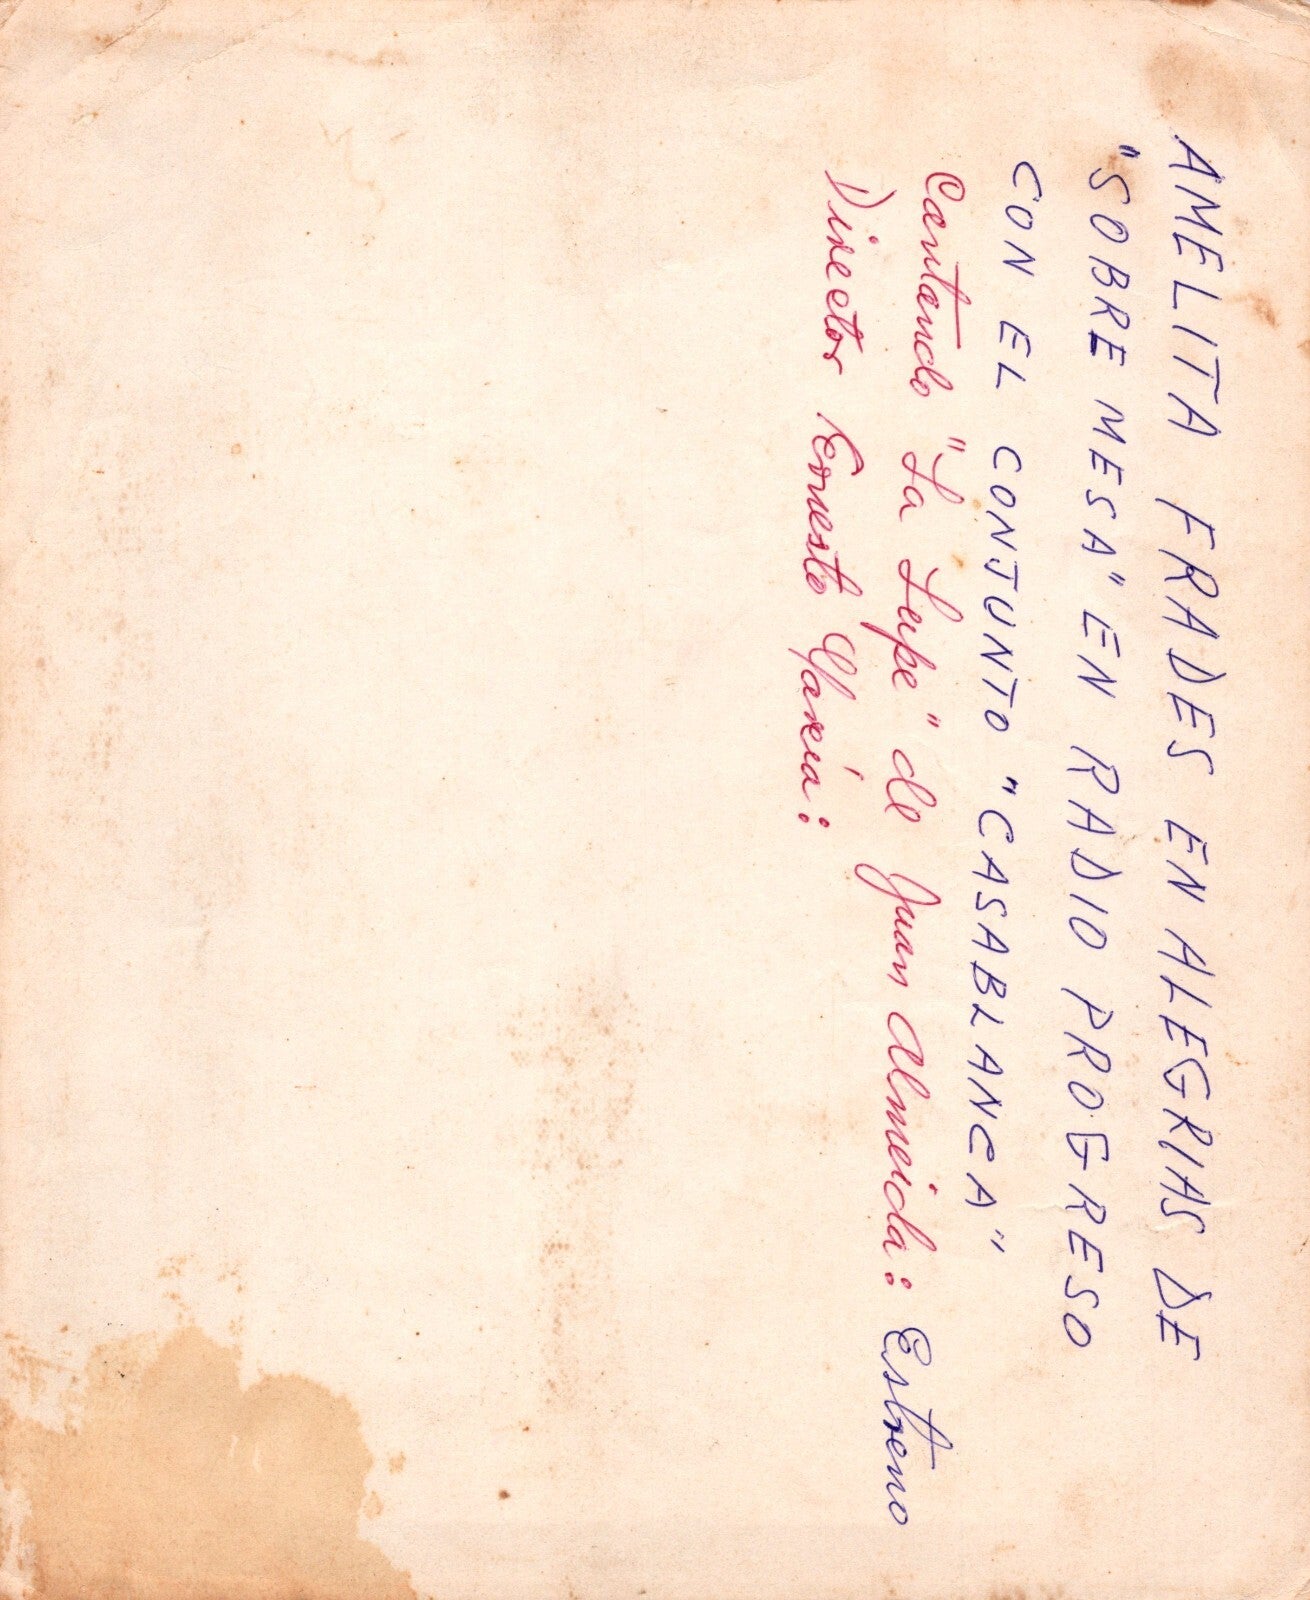 AMELITA FRADES EN ALEGRIAS DE
"SOBRE MESA" EN RADIO PROGRESO
CON EL CONJUNTO "CASABLANCA"
Cantando "La Lupe" de Juan Almeida: Estreno
Director Ernesto García: